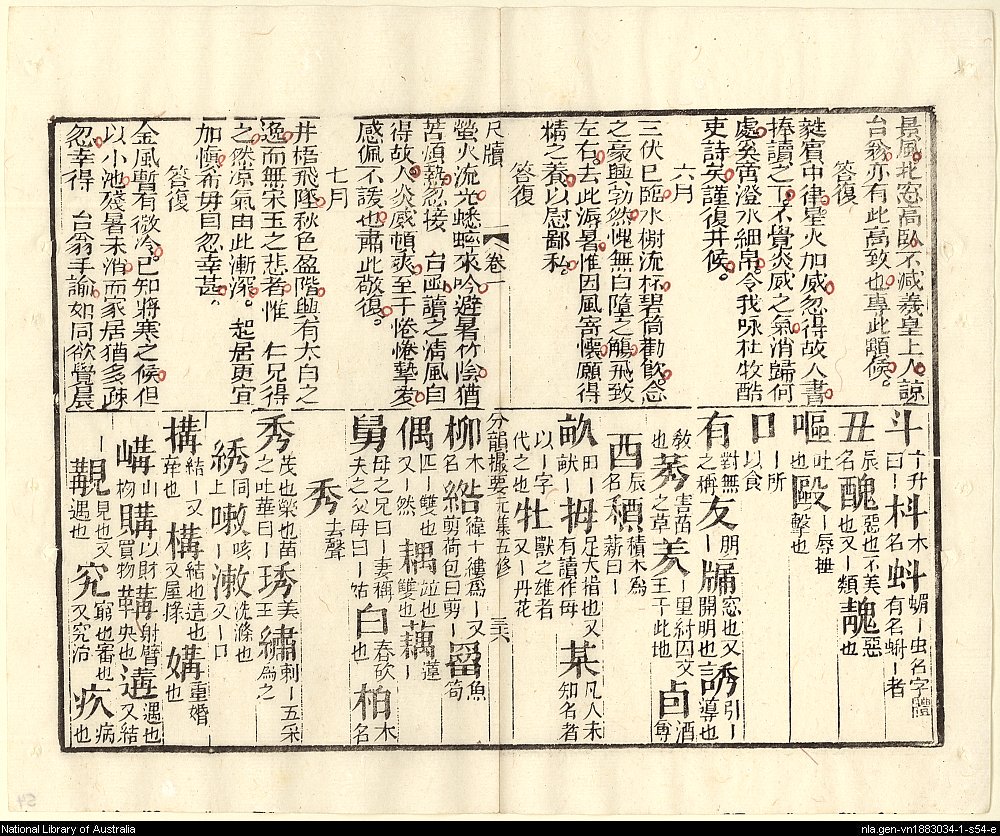 景風北窓高臥不减羲皇上人諒
台翁亦有此高致也專此順候
答復
蕤賓中律星火加威忽得故人書
捧讀之下不覺炎威之氣消歸何
處矣再澄水細帛令我咏杜牧酷
吏詩矣謹復并候
六月
三伏已臨水榭流杯碧筒勸飲念
之豪興勃然愧無白墮之觴飛致
左右去此溽暑惟因風寄懷願得
精之養以慰鄙私
答復
尺牘 卷一
螢火流光蟋蟀來吟避暑竹陰猶
苦煩熱忽接 台函讀之清風自
得故人炎威頓爽至于惓惓摯友
感佩不諼也肅此敬復
七月
井梧飛墜秋色盈階興有太白之
逸而無宋玉之悲者惟 仁兄得
之然凉氣由此漸深 起居更宜
加慎希毋自忽幸甚
答復
金風暫有微冷已知將寒之候但
以小池殘暑未消而家居猶多疎
忽幸得 台翁手諭如同欲覺晨
斗 十升曰｜ 枓 木名 蚪 蝌｜虫名字體有名蝌｜者
丑 辰名 醜 惡也不美也又｜類 醜 惡也
嘔 吐也 毆 ｜辱捶擊也
口 ｜所以食
有 對無之稱 友 朋｜ 牖 窓也又開明也 誘 引｜導也
敎也 莠 害苗之草 羑 ｜里紂囚文王于此地 卣 酒尊
酉 辰名 槱 積木爲薪曰｜
畝 田｜畝｜ 拇 足大指也又有讀作母 某 凡人未知名者
以｜字代之也 牡 獸之雄者又｜丹花
分韻撮要元集五修 三六
柳 木名 綹 緯十縷爲｜又剪荷包曰剪｜ 罶 魚笱
偶 匹｜雙也又｜然 耦 並也雙也 藕 蓮｜
舅 母之兄曰｜妻稱夫之父母曰｜姑 臼 舂砍也 桕 木名
秀 去聲
秀 茂也榮也苗之吐華曰｜ 琇 美玉 繡 刺｜五采爲之
綉 同上 嗽 咳｜ 漱 洗滌也又｜口
搆 結｜又牽也 構 結也造也又屋檪 媾 重婚也
㟼 山｜枸 購 以財買物 韝 射臂夬也 遘 遇也又結
｜ 覯 見也又遇也 究 窮也審也又究治 疚 病也
National Library of Australia
nla.gen-vn1883034-1-s54-e